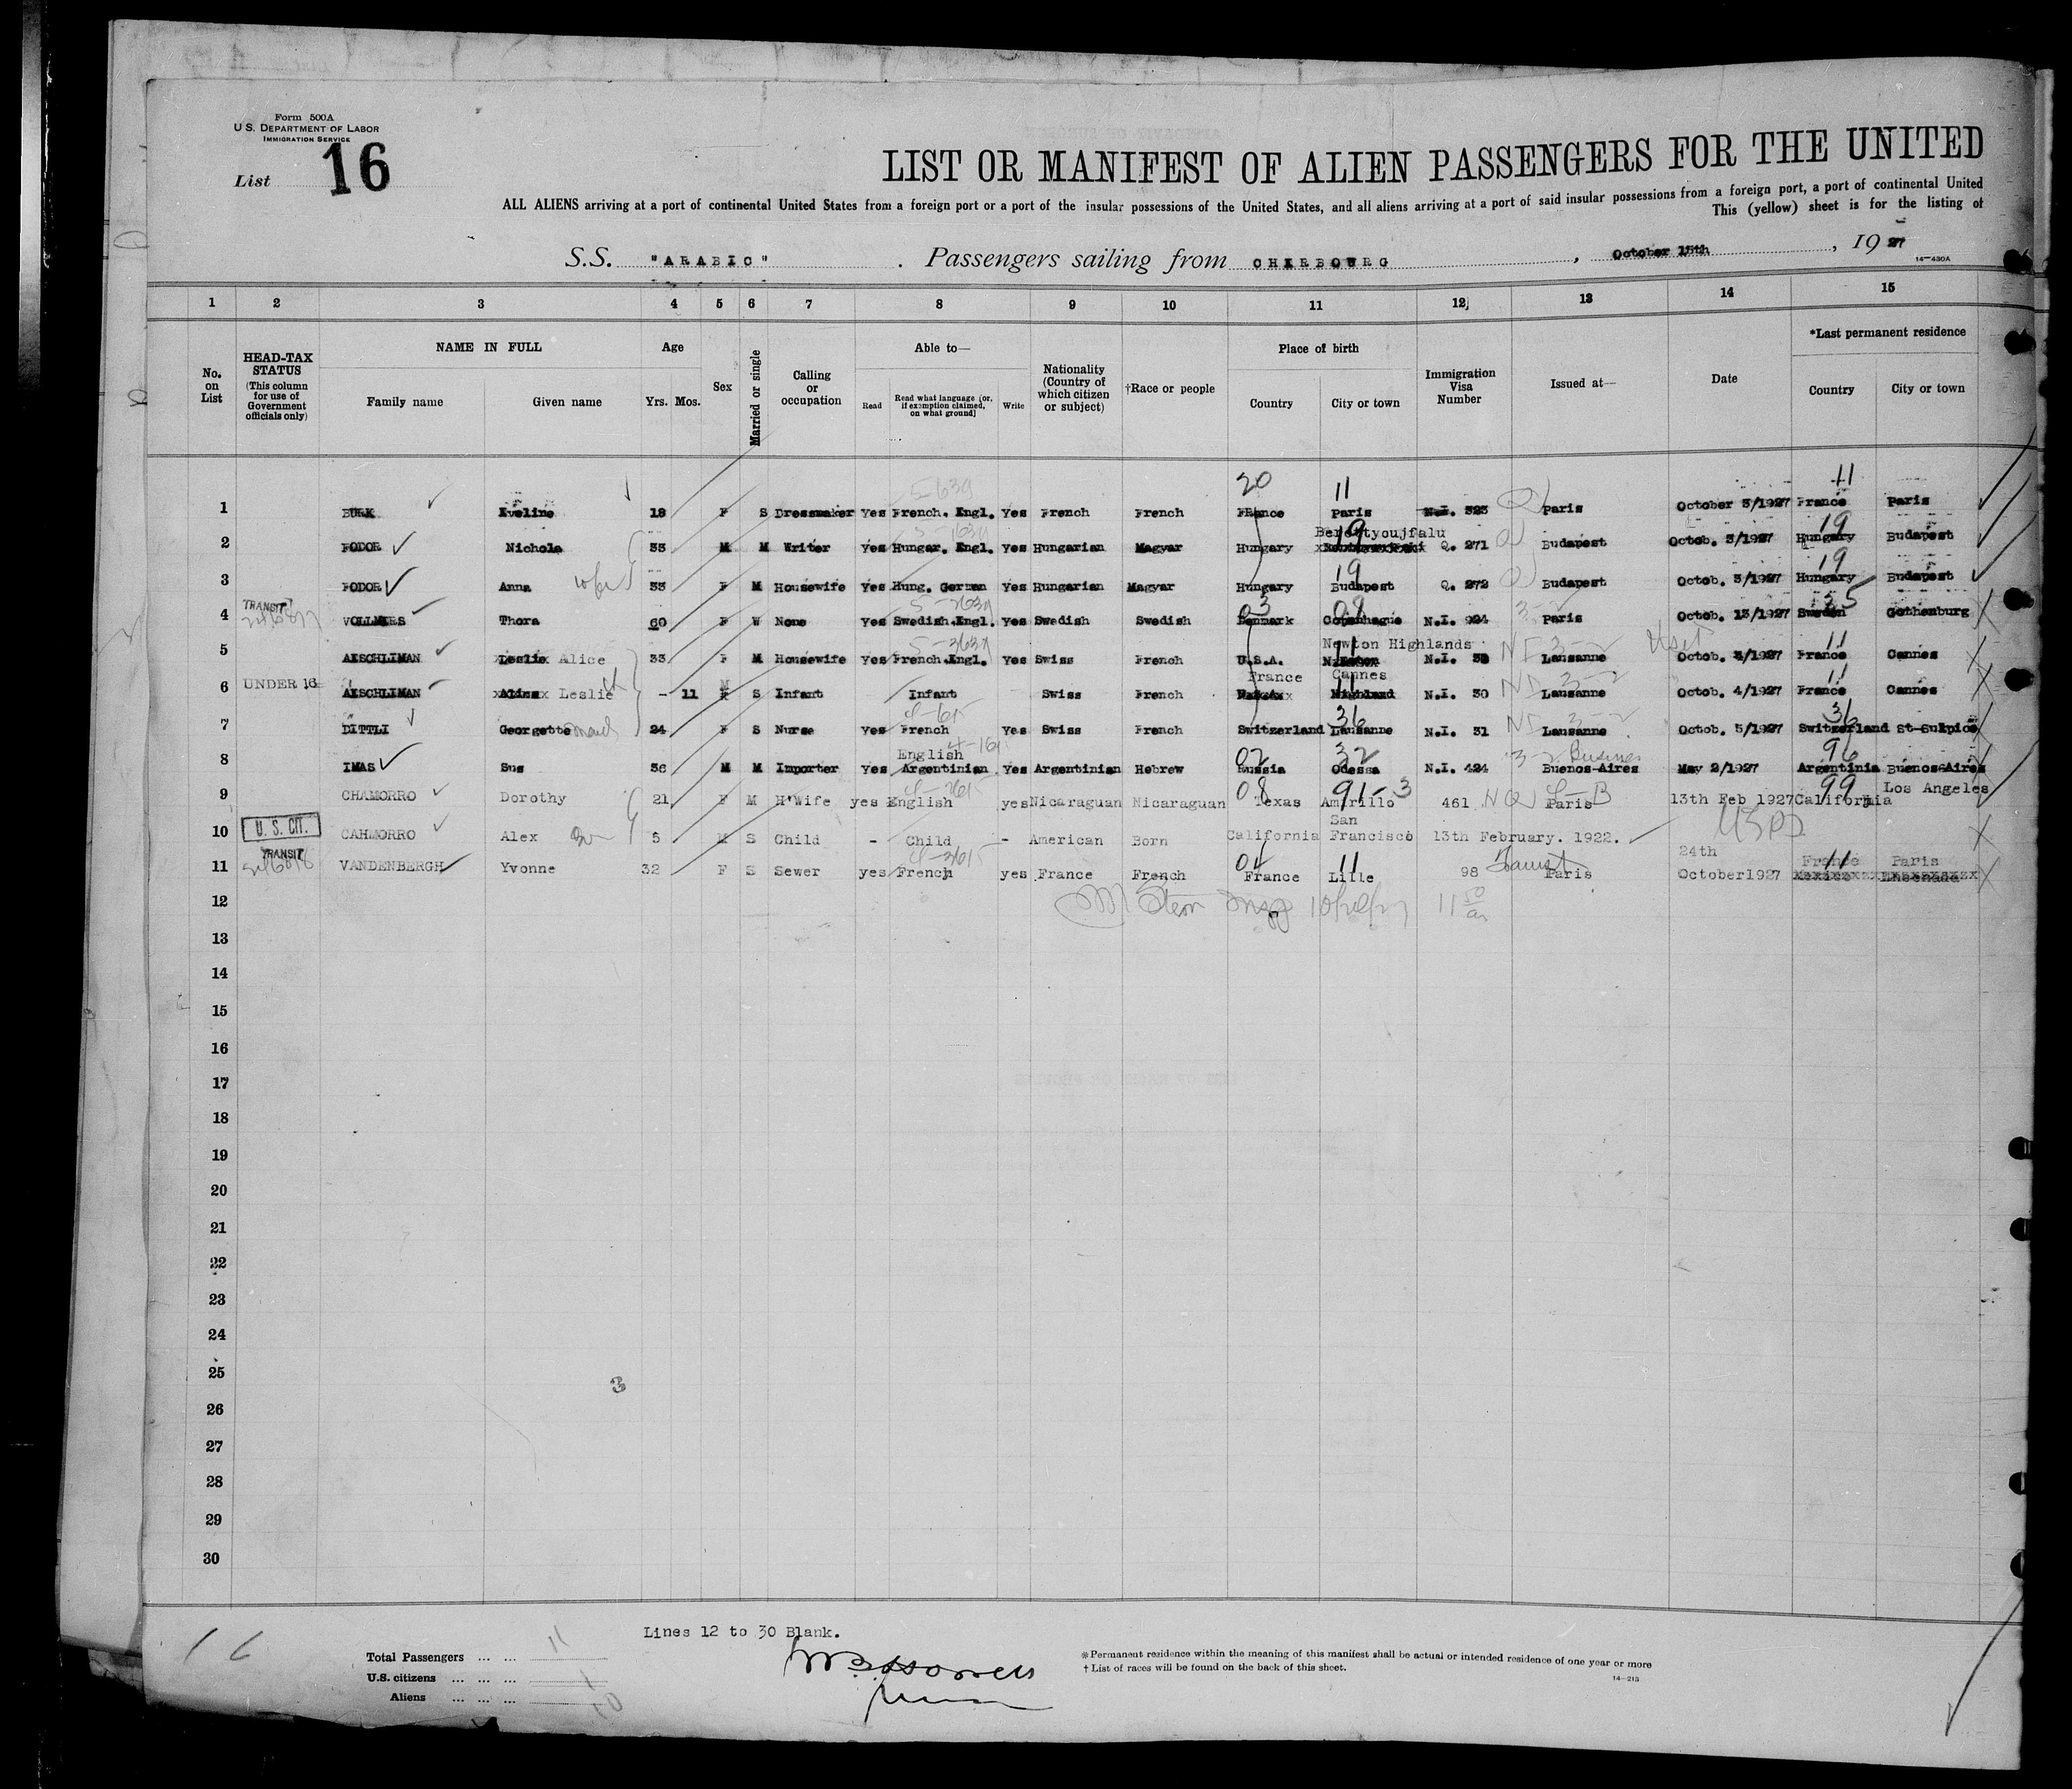 Form 500A
U.S. DEPARTMENT OF LABOR
IMMIGRATION SERVICE
List 16
LIST OR MANIFEST OF ALIEN PASSENGERS FOR THE UNITED
ALL ALIENS arriving at a port of continental United States from a foreign port or a port of the insular possessions of the United States, and all aliens arriving at a port of said insular possessions from a foreign port, a port of continental United
This (yellow) sheet is for the listing of
S.S. "ARABIC". Passengers sailing from CHERBOURG, October 15th, 1927
14-430A
1 2 3 4 5 6 7 8 9 10 11 12 13 14 15
No. on List
HEAD-TAX STATUS (This column for use of Government officials only)
NAME IN FULL
Family name Given name
Age
Yrs. Mos.
Sex
Married or single
Calling or occupation
Able to—
Read
Read what language [or, if exemption claimed, on what ground]
Write
Nationality (Country of which citizen or subject)
†Race or people
Place of birth
Country City or town
Immigration Visa Number
Issued at—
Date
*Last permanent residence
Country City or town
20 11 11
1 BURK Eveline 18 F S Dressmaker Yes French. Engl. Yes French French France Paris N.I. 323 Paris October 3/1927 France Paris
Berettyoujfalu
19 19
2 FODOR Nichola 33 M M Writer Yes Hungar. Engl. Yes Hungarian Magyar Hungary Q. 271 Budapest Octob. 3/1927 Hungary Budapest
19 19
3 FODOR Anna wife 33 F M Housewife Yes Hung. German Yes Hungarian Magyar Hungary Budapest Q. 272 Budapest Octob. 3/1927 Hungary Budapest
TRANSIT 03 08 35
4 VOLLMERS Thora 60 F W None Yes Swedish.Engl. Yes Swedish Swedish Denmark Copenhague N.I. 924 Paris Octob. 13/1927 Sweden Gothenburg
Newton Highlands
11
5 AESCHLIMAN Alice 33 F M Housewife Yes French.Engl. Yes Swiss French U.S.A. N.I. Lausanne Octob. 4/1927 France Cannes
France Cannes
11 11
6 UNDER 16 AESCHLIMAN Leslie - 11 M S Infant Infant Swiss French N.I. 30 Lausanne Octob. 4/1927 France Cannes
36 36
7 DITTLI Georgette maid 24 F S Nurse Yes French Yes Swiss French Switzerland Lausanne N.I. 31 Lausanne Octob. 5/1927 Switzerland St-Sulpice
English
02 32 96
8 IMAS Sus 36 M M Importer Yes Argentinian Yes Argentinian Hebrew Russia Odessa N.I. 424 Buenos-Aires May 2/1927 Argentinia Buenos-Aires
08 91-3 99 Los Angeles
9 CHAMORRO Dorothy 21 F M H'Wife yes English yes Nicaraguan Nicaraguan Texas Amarillo 461 Paris 13th Feb 1927 California
San
10 U. S. CIT. CAHMORRO Alex 5 M S Child - Child - American Born California Francisco 13th February. 1922.
TRANSIT 11 24th France Paris
11 VANDENBERGH Yvonne 32 F S Sewer yes French yes France French France Lille 98 Paris October1927
12
13
14
15
16
17
18
19
20
21
22
23
24
25
26
27
28
29
30
Lines 12 to 30 Blank.
16
Total Passengers ... ... 11
U.S. citizens ... ... ... 1
Aliens ... ... ... 10
* Permanent residence within the meaning of this manifest shall be actual or intended residence of one year or more
† List of races will be found on the back of this sheet.
14-213